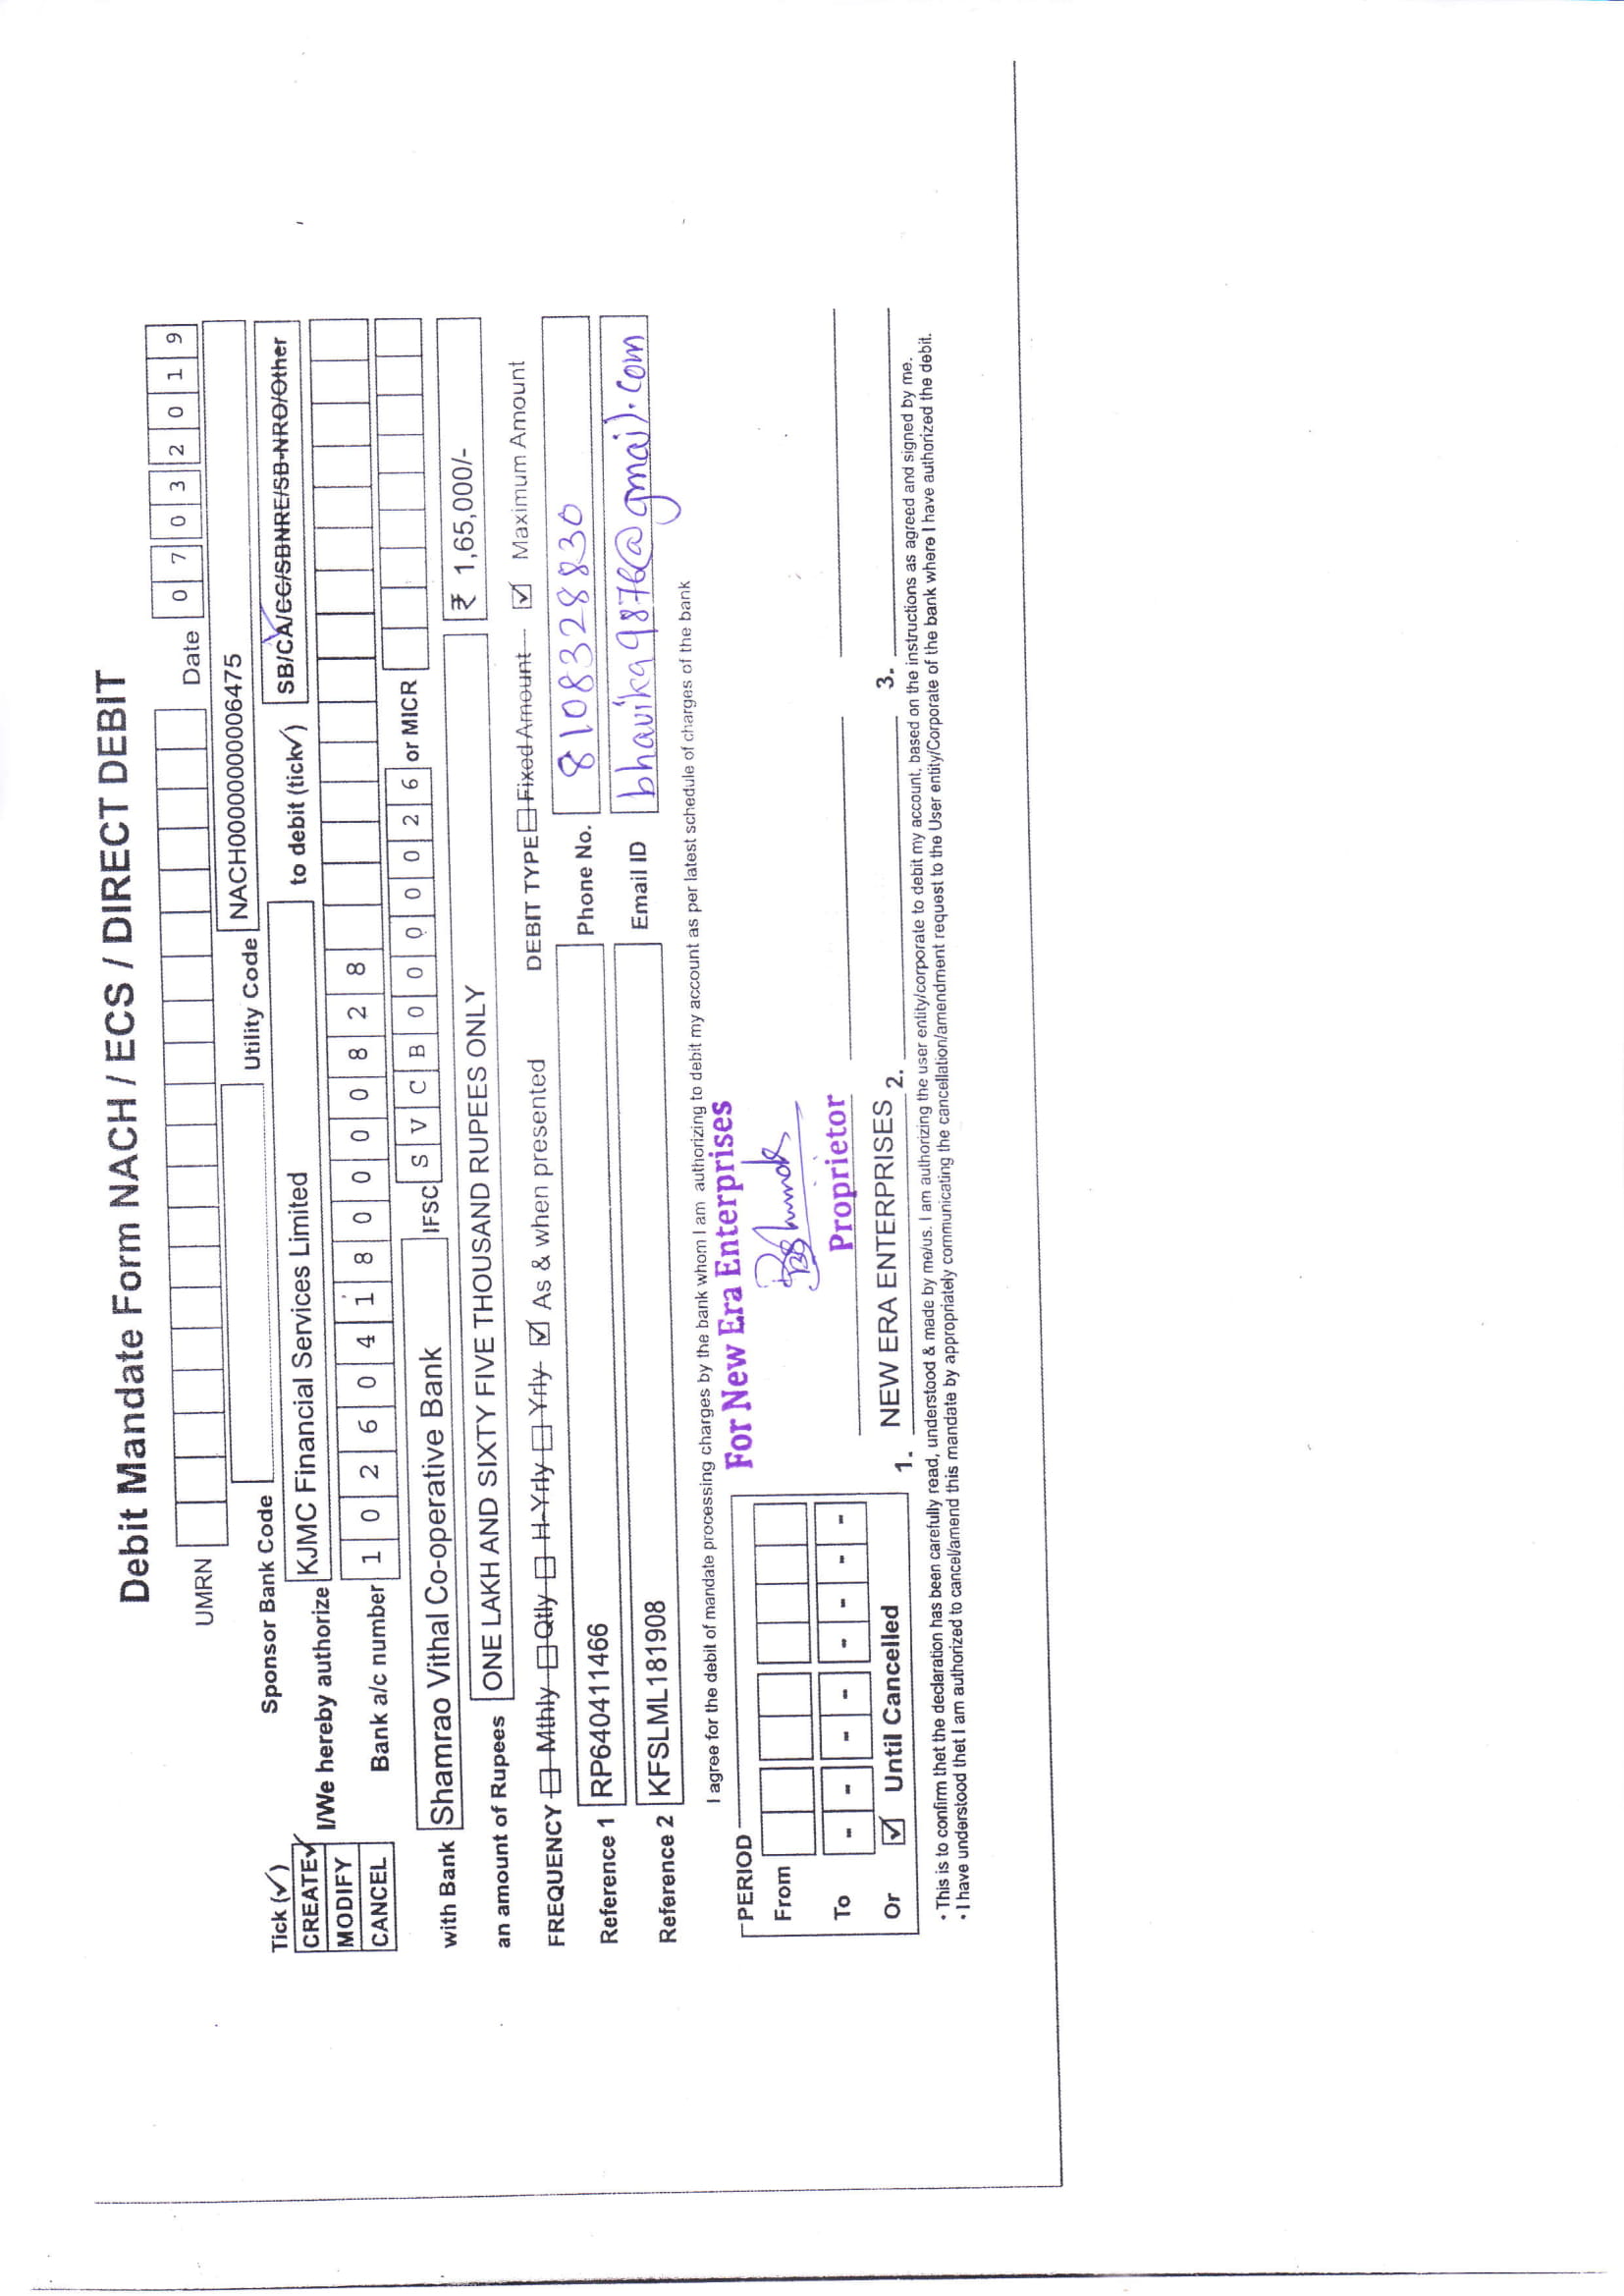 Debit Mandate Form NACH / ECS / DIRECT DEBIT
UMRN Date 0 7 0 3 2 0 1 9
Sponsor Bank Code Utility Code NACH00000000006475
Tick (✓)
CREATE✓
MODIFY
CANCEL
I/We hereby authorize KJMC Financial Services Limited to debit (tick✓) SB/CA/CC/SBNRE/SB-NRO/Other
Bank a/c number 1 0 2 6 0 4 1 8 0 0 0 0 8 2 8
with Bank Shamrao Vithal Co-operative Bank IFSC S V C B 0 0 0 0 0 2 6 or MICR
an amount of Rupees ONE LAKH AND SIXTY FIVE THOUSAND RUPEES ONLY ₹ 1,65,000/-
FREQUENCY ☐ Mthly ☐ Qtly ☐ H-Yrly ☐ Yrly ☑ As & when presented DEBIT TYPE ☐ Fixed Amount ☑ Maximum Amount
Reference 1 RP640411466 Phone No. 8108328830
Reference 2 KFSLML181908 Email ID bhavika9876@gmail.com
I agree for the debit of mandate processing charges by the bank whom I am authorizing to debit my account as per latest schedule of charges of the bank
PERIOD
From
To - - - - - - - -
Or ☑ Until Cancelled
For New Era Enterprises
Proprietor
1. NEW ERA ENTERPRISES 2. 3.
• This is to confirm thet the declaration has been carefully read, understood & made by me/us. I am authorizing the user entity/corporate to debit my account, based on the instructions as agreed and signed by me.
• I have understood thet I am authorized to cancel/amend this mandate by appropriately communicating the cancellation/amendment request to the User entity/Corporate of the bank where I have authorized the debit.